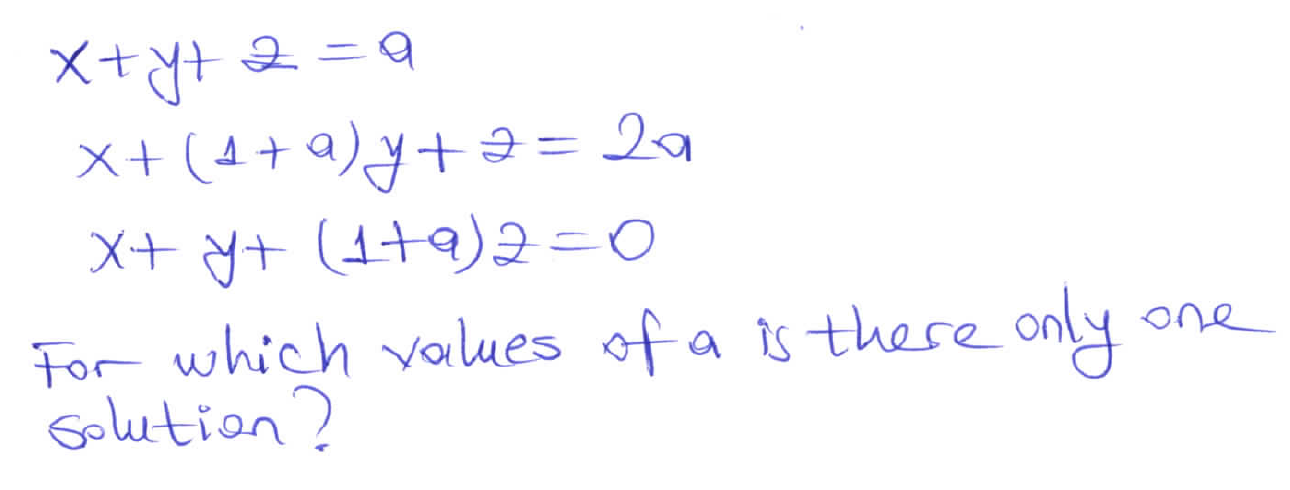 x+y+z=a
x+(1+a)y+z=2a
x+y+(1+a)z=0
For which values of a is there only one
solution?